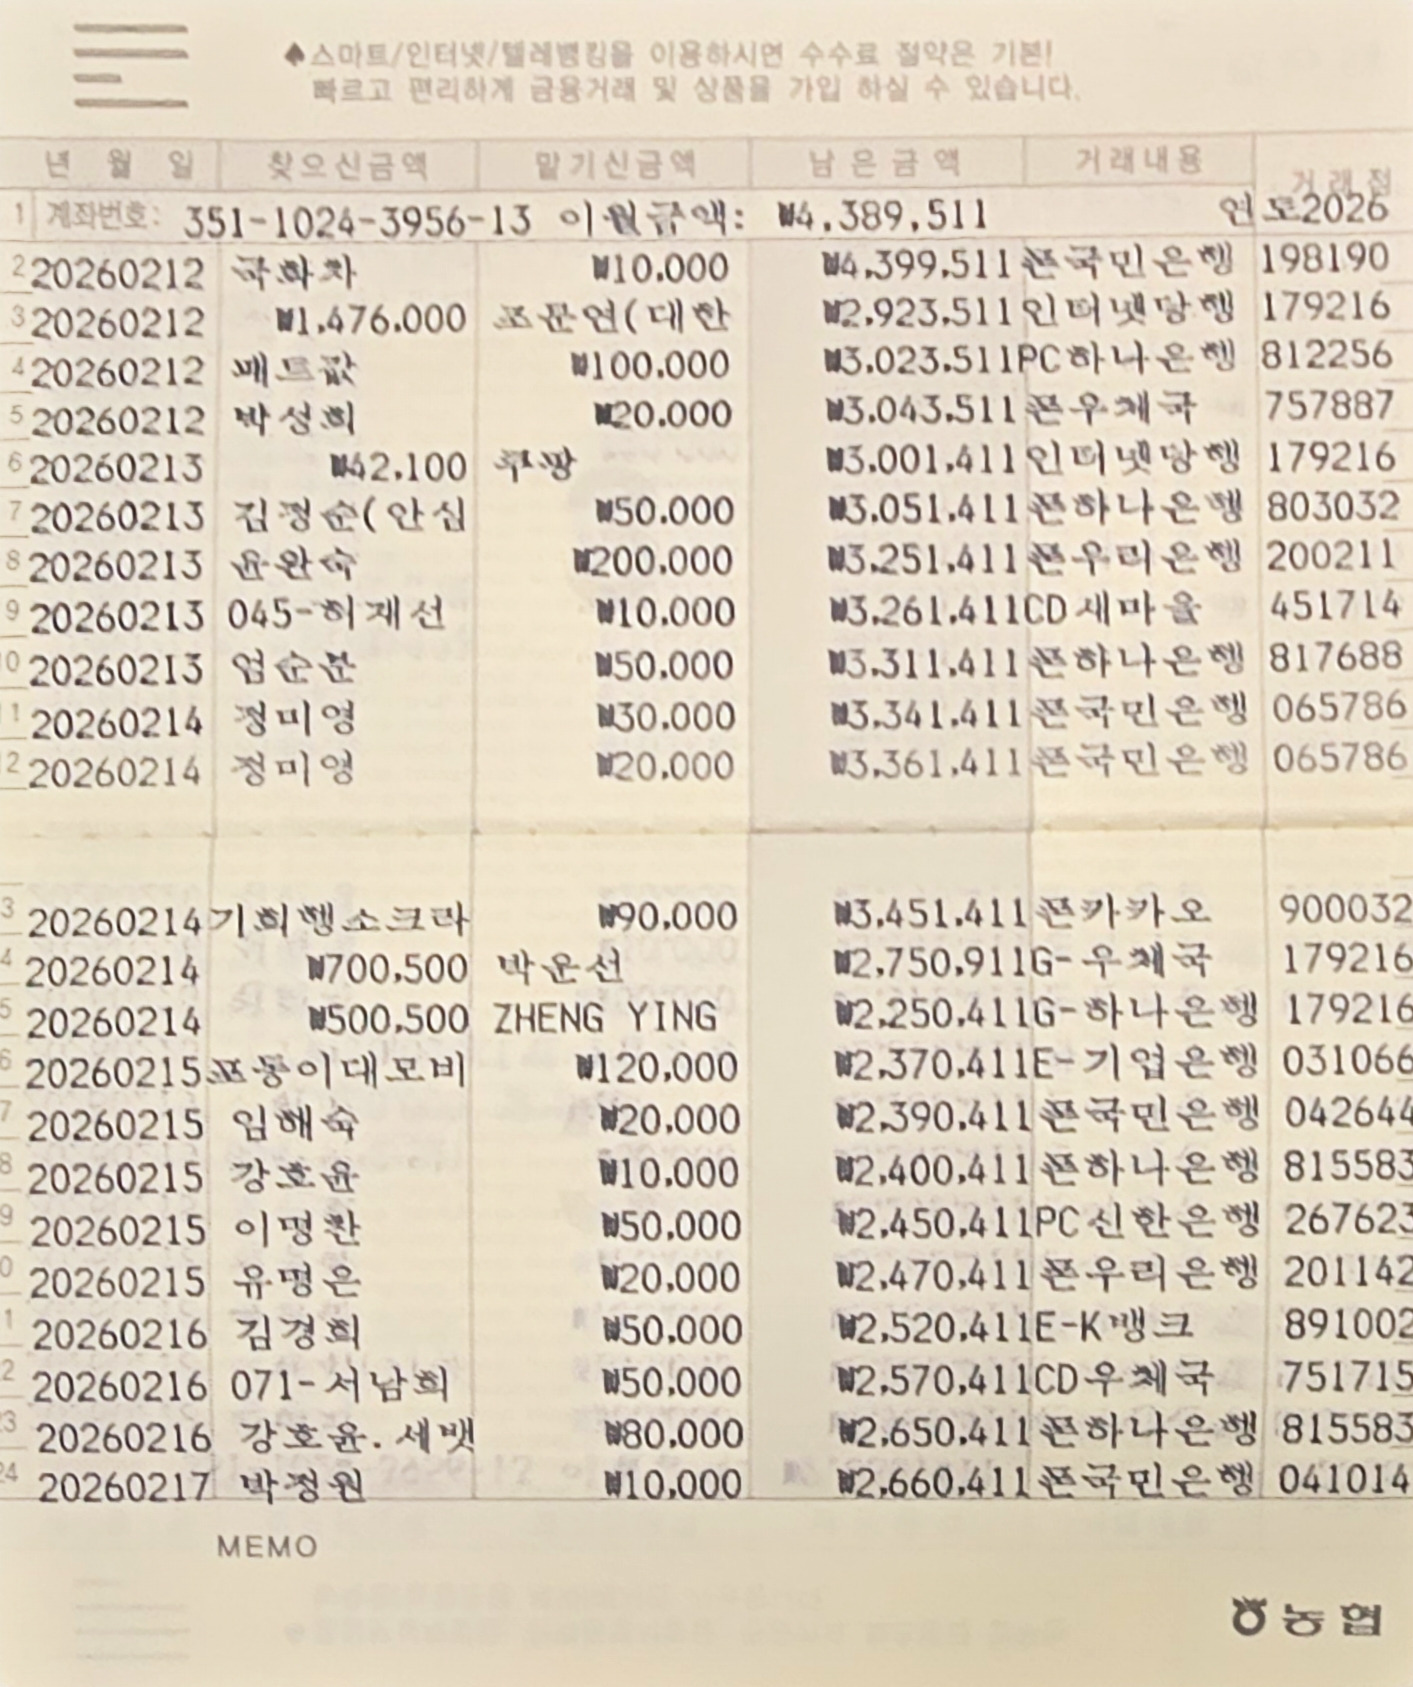 ♠스마트/인터넷/텔레뱅킹을 이용하시면 수수료 절약은 기본!
빠르고 편리하게 금융거래 및 상품을 가입 하실 수 있습니다.
년 월 일 찾으신금액 맡기신금액 남은금액 거래내용 거래점
1 계좌번호: 351-1024-3956-13 이월금액: ₩4,389,511 연도2026
2 20260212 국화차 ₩10,000 ₩4,399,511 폰국민은행 198190
3 20260212 ₩1,476,000 조문연(대한 ₩2,923,511 인터넷당행 179216
4 20260212 매트값 ₩100,000 ₩3,023,511 PC하나은행 812256
5 20260212 박성희 ₩20,000 ₩3,043,511 폰우체국 757887
6 20260213 ₩42,100 쿠팡 ₩3,001,411 인터넷당행 179216
7 20260213 김정순(안심 ₩50,000 ₩3,051,411 폰하나은행 803032
8 20260213 윤완숙 ₩200,000 ₩3,251,411 폰우리은행 200211
9 20260213 045-허재선 ₩10,000 ₩3,261,411 CD새마을 451714
10 20260213 엄순분 ₩50,000 ₩3,311,411 폰하나은행 817688
11 20260214 정미영 ₩30,000 ₩3,341,411 폰국민은행 065786
12 20260214 정미영 ₩20,000 ₩3,361,411 폰국민은행 065786
3 20260214 기희행소크라 ₩90,000 ₩3,451,411 폰카카오 900032
4 20260214 ₩700,500 박운선 ₩2,750,911 G-우체국 179216
5 20260214 ₩500,500 ZHENG YING ₩2,250,411 G-하나은행 179216
6 20260215 포동이대모비 ₩120,000 ₩2,370,411 E-기업은행 031066
7 20260215 임해숙 ₩20,000 ₩2,390,411 폰국민은행 042644
8 20260215 강호윤 ₩10,000 ₩2,400,411 폰하나은행 815583
9 20260215 이명찬 ₩50,000 ₩2,450,411 PC신한은행 267623
0 20260215 유명은 ₩20,000 ₩2,470,411 폰우리은행 201142
1 20260216 김경희 ₩50,000 ₩2,520,411 E-K뱅크 891002
2 20260216 071-서남희 ₩50,000 ₩2,570,411 CD우체국 751715
23 20260216 강호윤.세뱃 ₩80,000 ₩2,650,411 폰하나은행 815583
24 20260217 박정원 ₩10,000 ₩2,660,411 폰국민은행 041014
MEMO
농협